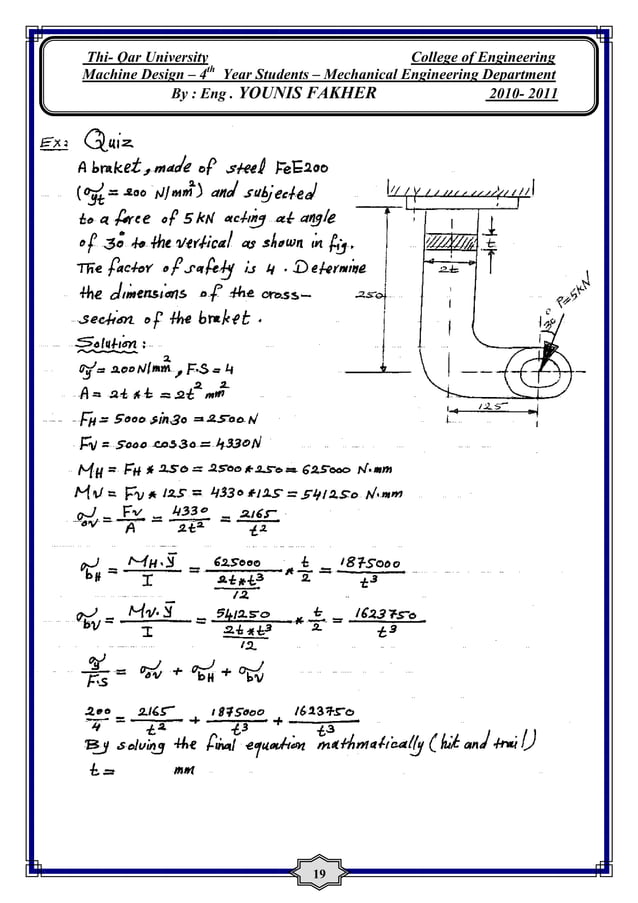 Thi- Qar University College of Engineering
Machine Design – 4th Year Students – Mechanical Engineering Department
By : Eng . YOUNIS FAKHER 2010- 2011
EX: Quiz
A braket, made of steel FeE200
(σyt = 200 N/mm²) and subjected
to a force of 5 kN acting at angle
of 30° to the vertical as shown in fig.
The factor of safety is 4. Determine
the dimensions of the cross-
section of the braket.
t
2t
250
30°
P=5kN
125
Solution:
σy = 200 N/mm², F.S = 4
A = 2t * t = 2t² mm²
FH = 5000 sin30 = 2500 N
FV = 5000 cos30 = 4330 N
MH = FH * 250 = 2500 * 250 = 625000 N.mm
MV = FV * 125 = 4330 * 125 = 541250 N.mm
σov = FV/A = 4330/2t² = 2165/t²
σbH = MH.ȳ/I = 625000/(2t*t³/12) * t/2 = 1875000/t³
σbV = MV.ȳ/I = 541250/(2t*t³/12) * t/2 = 1623750/t³
σy/F.S = σov + σbH + σbV
200/4 = 2165/t² + 1875000/t³ + 1623750/t³
By solving the final equation mathmatically (hit and trail)
t = mm
19